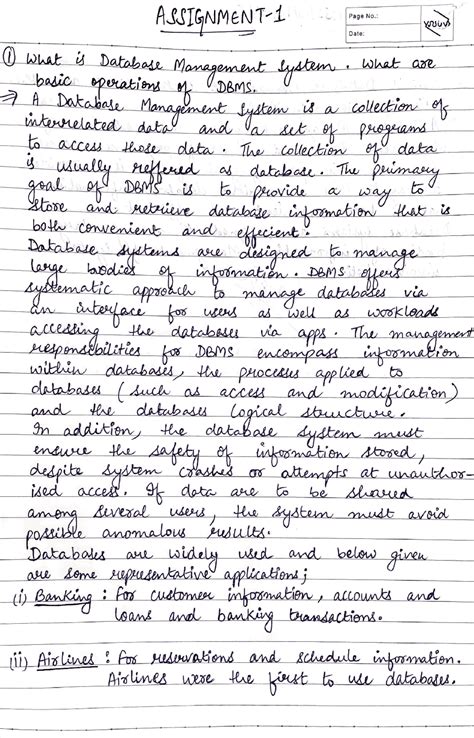 ASSIGNMENT-1
Page No.:
Date:
① What is Database Management System. What are
basic operations of DBMS.
⇒ A Database Management System is a collection of
interrelated data and a set of programs
to access those data. The collection of data
is usually reffered as database. The primary
goal of DBMS is to provide a way to
store and retrieve database information that is
both convenient and effecient.
Database systems are designed to manage
large bodies of information. DBMS offers
systematic approach to manage databases via
an interface for users as well as workloads
accessing the databases via apps. The management
responsibilities for DBMS encompass information
within databases, the processes applied to
databases (such as access and modification)
and the databases logical structure.
In addition, the database system must
ensure the safety of information stored,
despite system crashes or attempts at unauthor-
ised access. If data are to be shared
among several users, the system must avoid
possible anomalous results.
Databases are widely used and below given
are some representative applications;
(i) Banking : For customer information, accounts and
loans and banking transactions.
(ii) Airlines : For reservations and schedule information.
Airlines were the first to use databases.